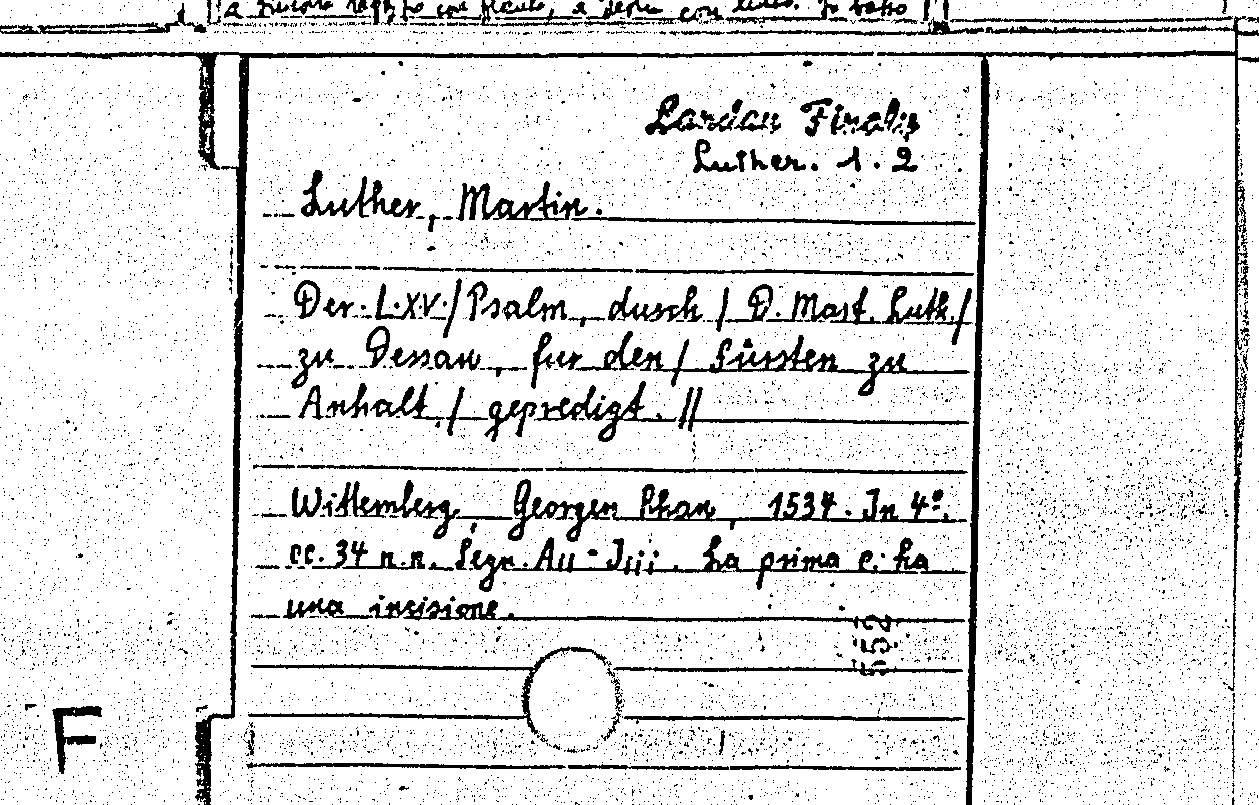 Landau Finaly
Luther. 1. 2
Luther, Martin.
Der. LXV./ Psalm, dusch / D. Mart. Luth./
zu Dessau, fur den / Fürsten zu
Anhalt / gepredigt. //
Wittemberg, Georgen Rhan, 1534. In 4°.
cc. 34 n.n. Segn. Aii - Jiii. La prima c. ha
una incisione.
552
F